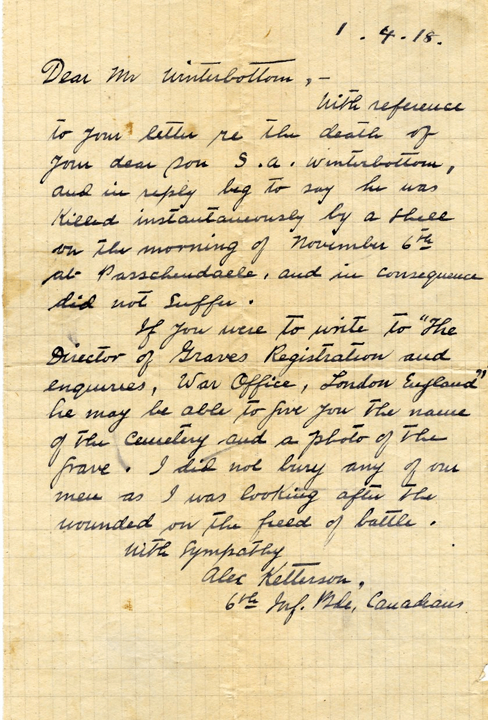 1.4.18.
Dear Mr Winterbottom,-
With reference
to your letter re the death of
your dear son S.A. Winterbottom,
and in reply beg to say he was
killed instantaneously by a shell
on the morning of November 6th
at Passchendaele, and in consequence
did not suffer.
If you were to write to "The
Director of Graves Registration and
enquiries, War Office, London England"
he may be able to give you the name
of the cemetery and a photo of the
grave. I did not bury any of our
men as I was looking after the
wounded on the field of battle.
With Sympathy
Alec Ketterson,
6th Inf. Bde, Canadians